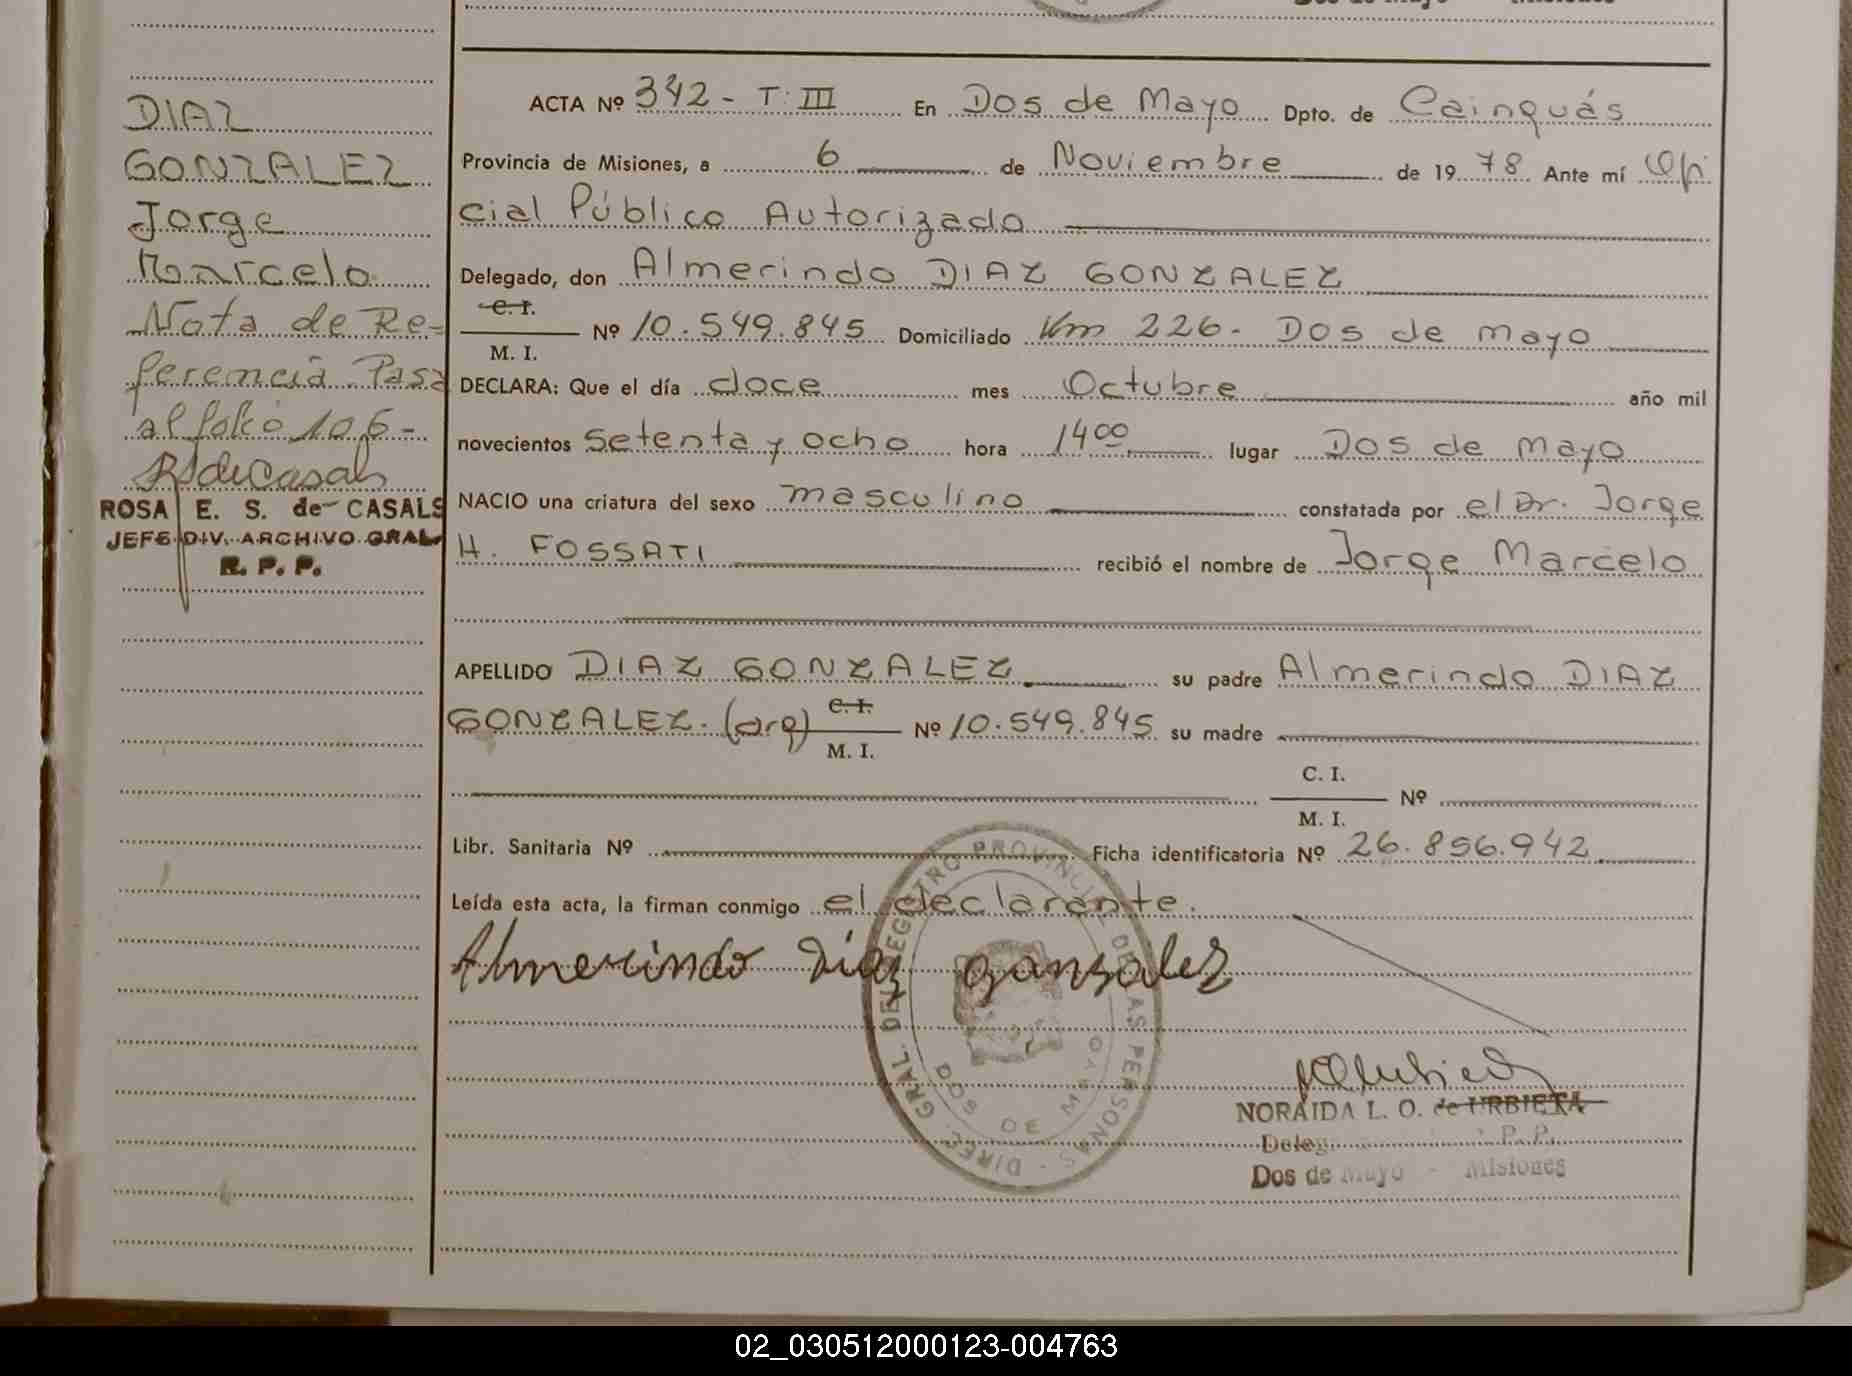 DIAZ
GONZALEZ
Jorge
Marcelo
Nota de Re-
ferencia Pasa
al folio 106-
ROSA E. S. de CASALS
JEFE DIV. ARCHIVO GRAL.
R. P. P.
ACTA Nº 342 - T: III En Dos de Mayo Dpto. de Cainguás
Provincia de Misiones, a 6 de Noviembre de 19 78 Ante mí Ofi
cial Público Autorizado
Delegado, don Almerindo DIAZ GONZALEZ
C. I.
M. I. Nº 10.549.845 Domiciliado Km 226- Dos de Mayo
DECLARA: Que el día doce mes Octubre año mil
novecientos setenta y ocho hora 14 00 lugar Dos de Mayo
NACIO una criatura del sexo masculino constatada por el Dr. Jorge
H. FOSSATI recibió el nombre de Jorge Marcelo
APELLIDO DIAZ GONZALEZ su padre Almerindo DIAZ
GONZALEZ. (arg) C. I.
M. I. Nº 10.549.845 su madre
C. I.
M. I. Nº
Libr. Sanitaria Nº Ficha identificatoria Nº 26.856.942
Leída esta acta, la firman conmigo el declarante.
Almerindo Díaz gonsalez
DIREC. GRAL. DEL REGISTRO PROVINCIAL DE LAS PERSONAS
DOS DE MAYO
NORAIDA L. O. de URBIETA
Dos de Mayo - Misiones
02_030512000123-004763